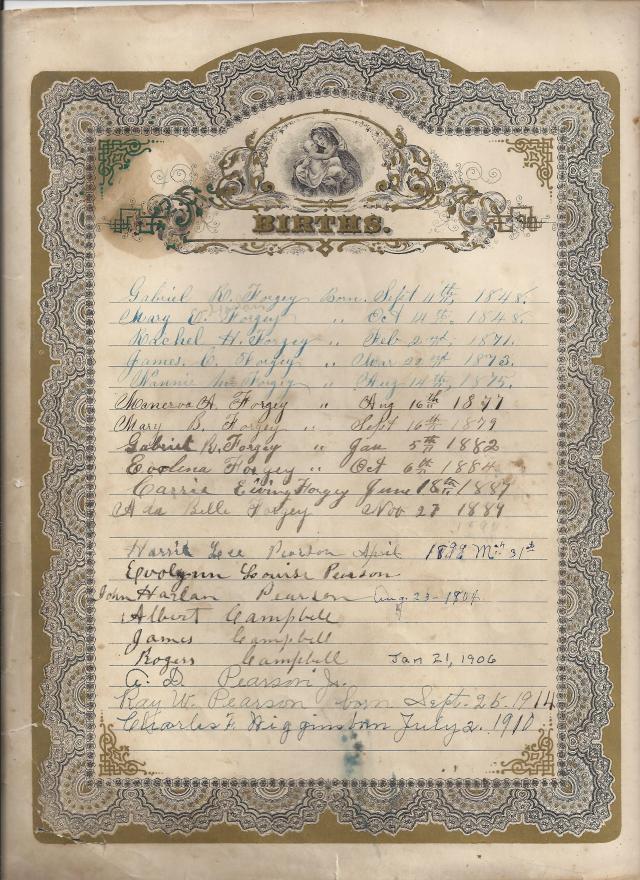 BIRTHS.
Gabriel R. Forgey Born. Sept 4th 1848.
Mary E. Forgey " Oct 14th 1848.
Rachel H. Forgey " Feb 2nd 1871.
James. C. Forgey " 1873.
Nannie Forgey " Aug 14th 1875.
Manerva A. Forgey " Aug 16th 1877
Mary B. Forgey " Sept 16th 1879
Gabriel R. Forgey " Jan 5th 1882
Evolena Forgey " Oct 6th 1884
Carrie Ewing Forgey June 18th 1887
Ada Belle Forgey Nov 27 1889
Harrie Lee Pearson April 1899 Mch 31st
Evolynn Louise Pearson
John Harlan Pearson Aug. 23 - 1904
Albert Campbell
James Campbell
Rogers Campbell Jan 21, 1906
A. D. Pearson Jr.
Ray W. Pearson born Sept. 25. 1914
Charles F. Higginson July 2. 1910